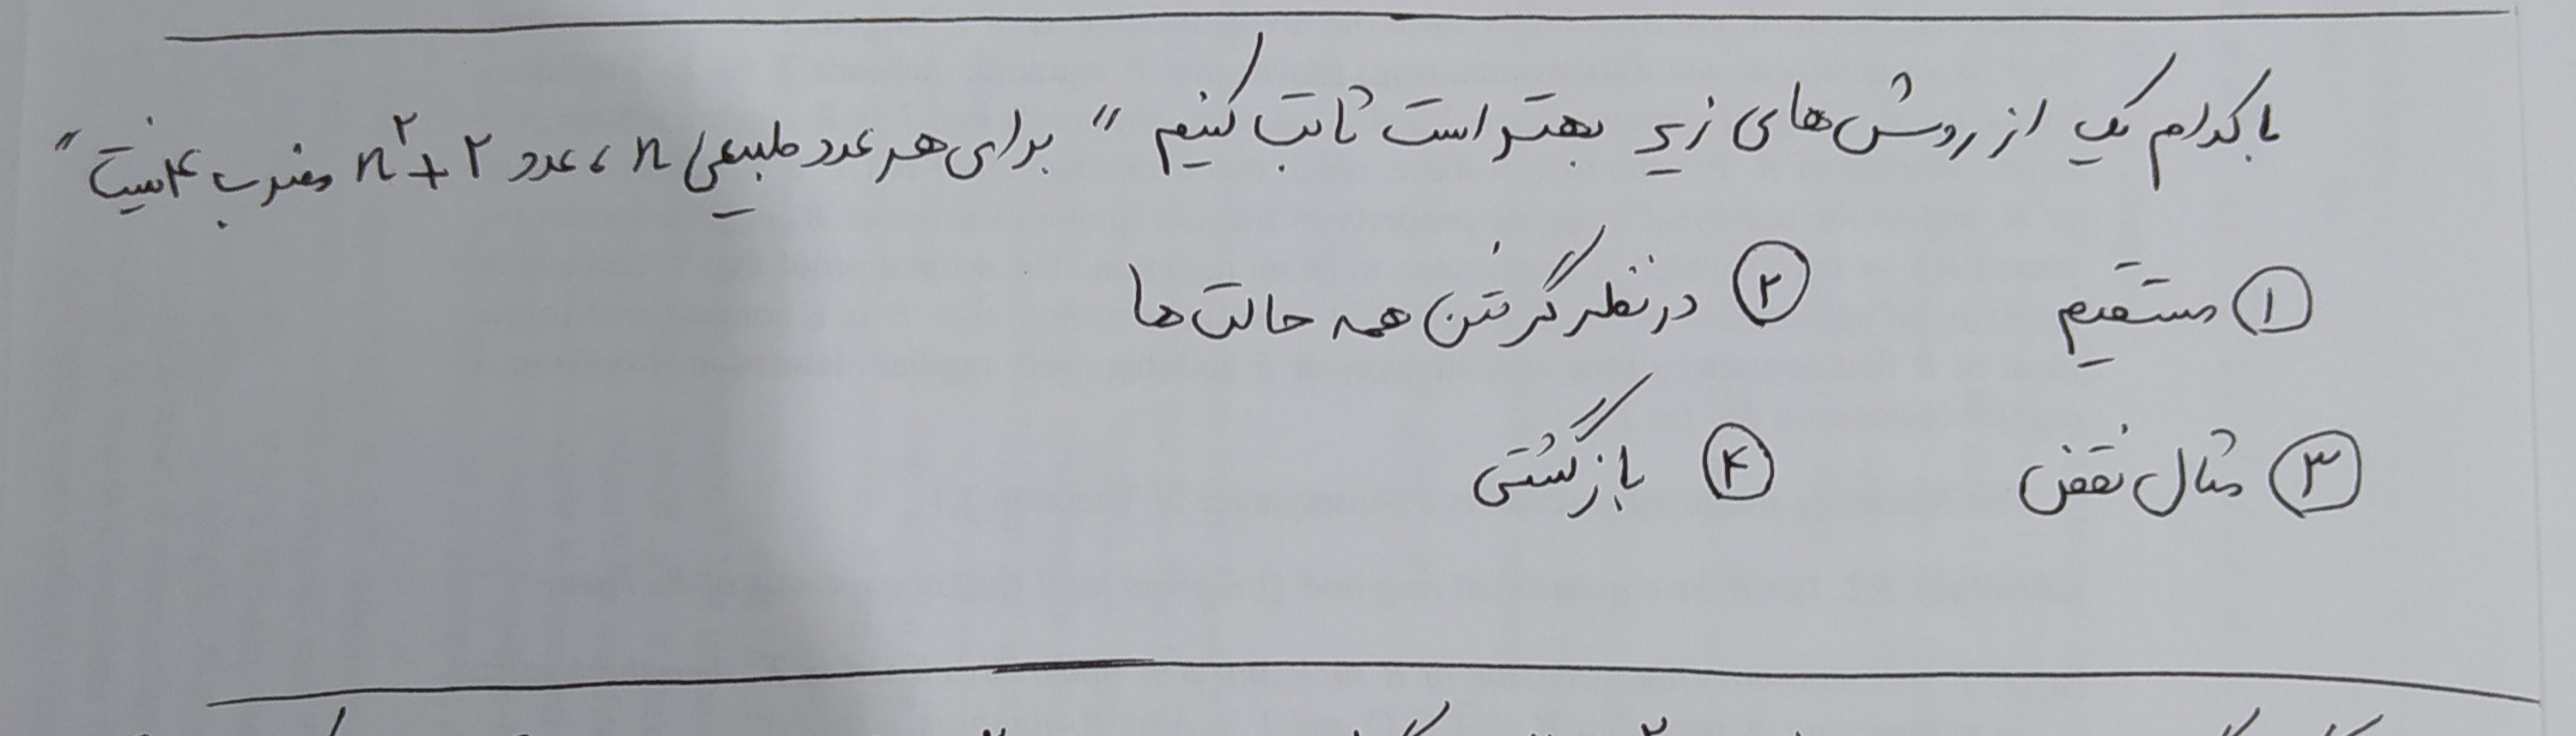 با کدام یک از روش های زیر بهتر است ثابت کنیم " برای هر عدد طبیعی n ، عدد n²+2 مضرب ۴ نیست "
① مستقیم ② در نظر گرفتن همه حالت ها
③ مثال نقض ④ بازگشتی